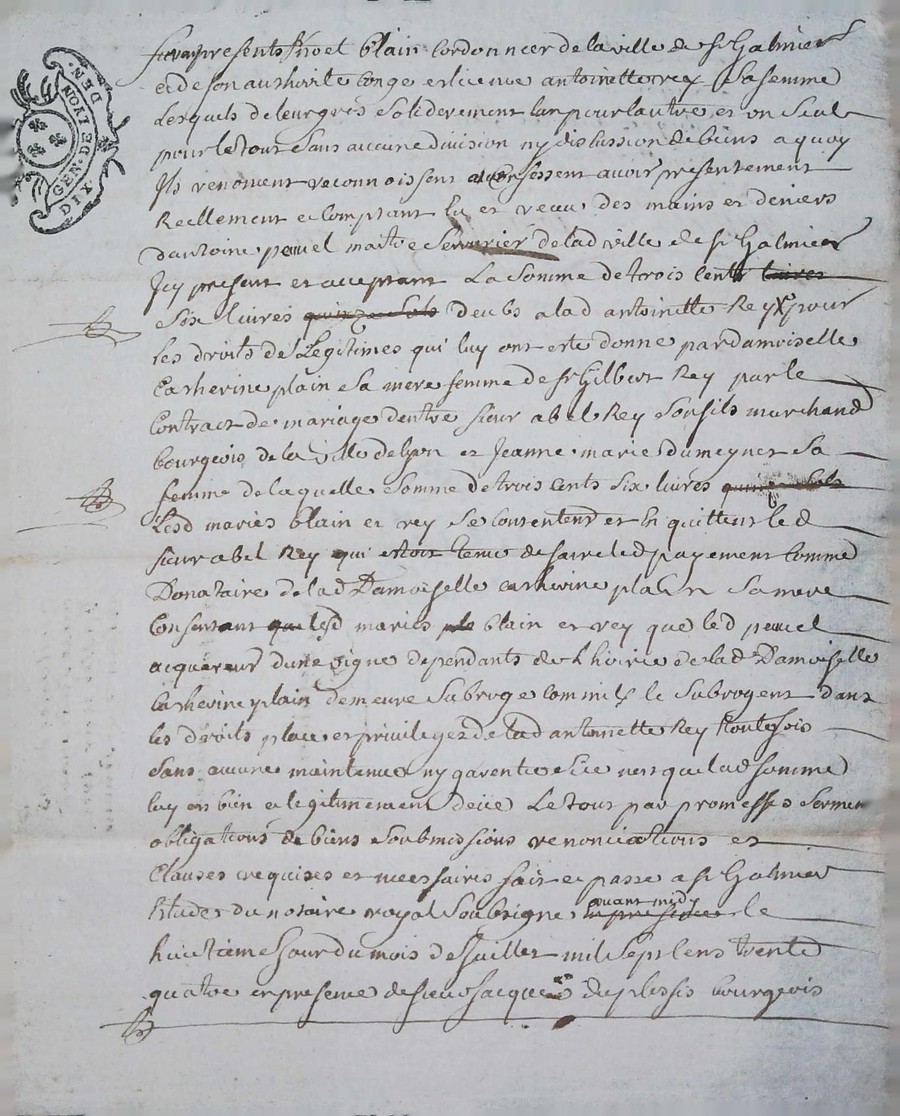 GEN. DE LYON
DIX DEN.
furent presents Noel blain Cordonnier de la ville de St Galmier
et de son authorité Congé et licence antoinette rey Sa femme
Lesquels de leur gré Soliderement lun pour lautre et un Seul
pour le tout Sans aucune division ny discussion de biens a quoy
Ils renoncent reconnoissent et confessent avoir presentement
Reellement et Comptant eu et receu des mains et deniers
dantoine peuuel maitre Serrurier de lad ville de St Galmier
Icy present et acceptant La Somme de trois Cents livres
Six livres quinze Sols deubs a lad antoinette Rey pour
les droits de Legitimes qui luy ont esté donné par damoiselle
Catherine plain Sa mere femme de Sr Gilbert Rey par le
Contract de mariage dentre Sieur abel Rey Son fils marchand
bourgeois de la ville de lyon et Jeanne marie dumeynet Sa
femme de laquelle Somme de trois Cents Six livres quinze Sols
Lesd mariés blain et rey Se Contentent et en quittent led
Sieur abel Rey qui estoit tenu de faire led payement Comme
Donataire de lad Damoiselle catherine plain Sa mere
Consentant que lesd mariés blain et rey que led peuuel
acquereur dune vigne dependants de l hoirie de lad Damoiselle
Catherine plain demeure Subrogé comm ils le Subrogent dans
les droits place et privileges de lad antoinette Rey toutefois
Sans aucune maintenue ny garentie Si ce nest que lad Somme
luy est bien et legitimement deüe Le tout par promesses Serment
obligations de biens Soubmissions renonciations et
Clauses requises et necessaires fait et passé a St Galmier
Etude du notaire royal Soubsigné avant midy le
huictieme Jour du mois de Juillet mil Sept Cens trente
quatre en presence de Sieur Jacques duplessis bourgeois